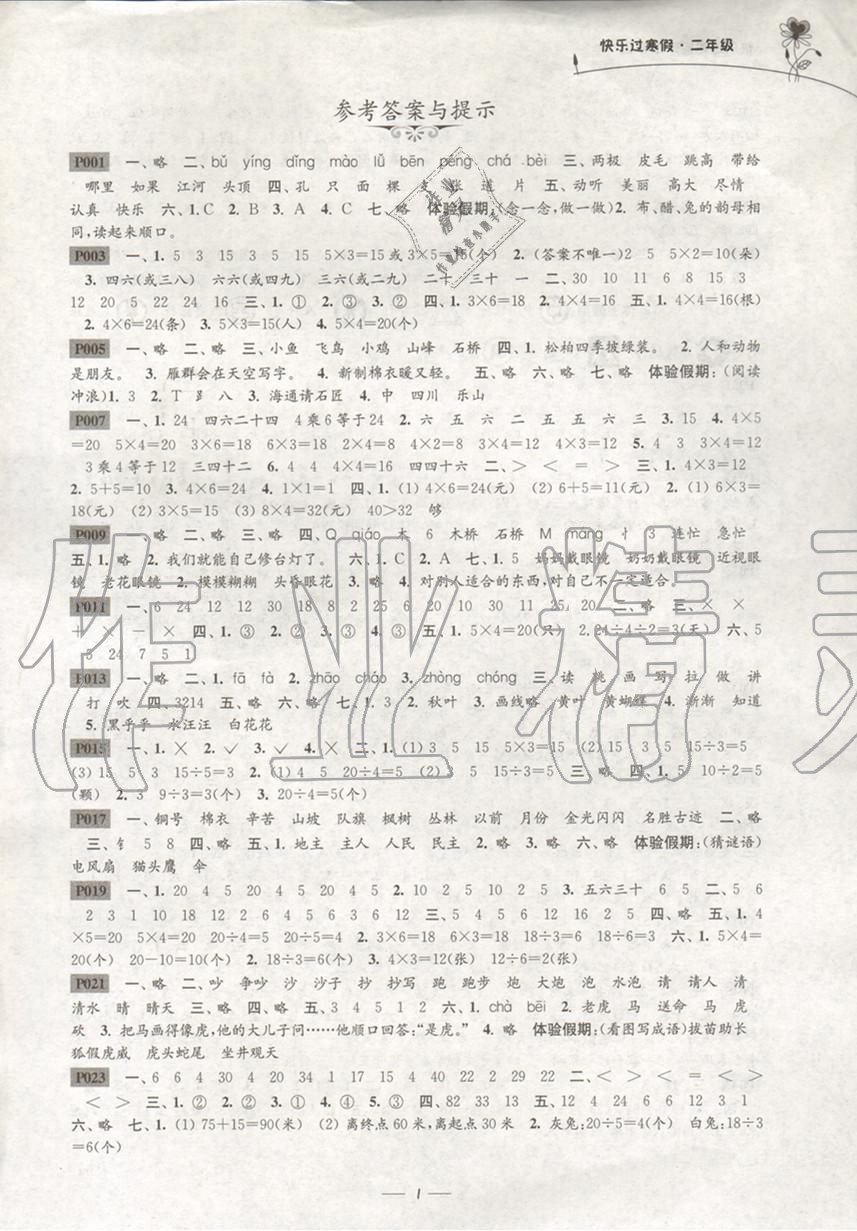 快乐过寒假·二年级
参考答案与提示
P001 一、略 二、bǔ yíng dǐng mào lǜ bēn péng chá bèi 三、两极 皮毛 跳高 带给
哪里 如果 江河 头顶 四、孔 只 面 棵 支 张 道 片 五、动听 美丽 高大 尽情
认真 快乐 六、1. C 2. B 3. A 4. C 七、略 体验假期:(念一念,做一做)2. 布、醋、兔的韵母相
同,读起来顺口。
P003 一、1. 5 3 15 3 5 15 5×3=15或3×5=15(个) 2. (答案不唯一)2 5 5×2=10(朵)
3. 四六(或三八) 六四(或四九) 三六(或二九) 二十 三十 一 二、30 10 11 6 8 15 3
12 20 5 22 24 16 三、1. ① 2. ③ 3. ② 四、1. 3×6=18 2. 4×4=16 五、1. 4×4=16(根)
2. 4×6=24(条) 3. 5×3=15(人) 4. 5×4=20(个)
P005 一、略 二、略 三、小鱼 飞鸟 小鸡 山峰 石桥 四、1. 松柏四季披绿装。 2. 人和动物
是朋友。 3. 雁群会在天空写字。 4. 新制棉衣暖又轻。 五、略 六、略 七、略 体验假期:(阅读
冲浪)1. 3 2. T 八 3. 海通请石匠 4. 中 四川 乐山
P007 一、1. 24 四六二十四 4乘6等于24 2. 六 五 六 二 五 五 六 三 3. 15 4. 4×5
=20 5×4=20 3×6=18 6×3=18 2×4=8 4×2=8 3×4=12 4×3=12 5. 4 3 3×4=12
3乘4等于12 三四十二 6. 4 4 4×4=16 四四十六 二、> < = > 三、1. 4×3=12
2. 5+5=10 3. 4×6=24 4. 1×1=1 四、1. (1) 4×6=24(元) (2) 6+5=11(元) 2. (1) 6×3=
18(元) (2) 3×5=15 (3) 8×4=32(元) 40>32 够
P009 一、略 二、略 三、略 四、Q qiáo 木 6 木桥 石桥 M máng 忄 3 连忙 急忙
五、1. 略 2. 我们就能自己修台灯了。 六、1. C 2. A 七、1. 5 妈妈戴眼镜 奶奶戴眼镜 近视眼
镜 老花眼镜 2. 模模糊糊 头昏眼花 3. 略 4. 对别人适合的东西,对自己不一定适合。
P011 一、6 24 12 12 30 18 8 2 25 6 20 10 30 11 25 20 二、略 三、× ×
+ × - × 四、1. ③ 2. ② 3. ③ 4. ③ 五、1. 5×4=20(只) 2. 24÷4÷2=3(天) 六、5
5 24 7 5 1
P013 一、略 二、1. fā fà 2. zhāo cháo 3. zhòng chóng 三、读 挑 画 写 拉 做 讲
打 吹 四、3214 五、略 六、略 七、1. 3 2. 秋叶 3. 画线略 黄叶 黄蝴蝶 4. 渐渐 知道
5. 黑乎乎 水汪汪 白花花
P015 一、1. × 2. ✓ 3. ✓ 4. × 二、1. (1) 3 5 15 5×3=15 (2) 15 3 5 15÷3=5
(3) 15 5 3 15÷5=3 2. (1) 4 5 20÷4=5 (2) 3 5 15÷3=5 三、略 四、1. 5 10÷2=5
(颗) 2. 3 9÷3=3(个) 3. 20÷4=5(个)
P017 一、铜号 棉衣 辛苦 山坡 队旗 枫树 丛林 以前 月份 金光闪闪 名胜古迹 二、略
三、钅 5 8 四、略 五、1. 地主 主人 人民 民主 2. 略 3. 略 六、略 体验假期:(猜谜语)
电风扇 猫头鹰 伞
P019 一、1. 20 4 5 20 4 5 20 5 4 2. 10 2 5 10 2 5 3. 五六三十 6 5 二、5 6
2 3 1 10 18 12 2 6 4 5 6 3 6 12 三、5 4 5 6 12 6 4 2 5 四、略 五、1. 4
×5=20 5×4=20 20÷4=5 20÷5=4 2. 3×6=18 6×3=18 18÷3=6 18÷6=3 六、1. 5×4=
20(个) 20-10=10(个) 2. 18÷3=6(个) 3. 4×3=12(张) 12÷6=2(张)
P021 一、略 二、吵 争吵 沙 沙子 抄 抄写 跑 跑步 炮 大炮 泡 水泡 请 请人 清
清水 晴 晴天 三、略 四、略 五、3 4 5 1 2 六、1. chà bēi 2. 老虎 马 送命 马 虎
砍 3. 把马画得像虎,他的大儿子问……他顺口回答:“是虎。” 4. 略 体验假期:(看图写成语)拔苗助长
狐假虎威 虎头蛇尾 坐井观天
P023 一、6 6 4 30 4 20 34 1 4 10 40 22 2 29 22 二、< > < = < >
< > 三、1. ② 2. ② 3. ① 4. ④ 5. ③ 四、82 33 13 五、12 4 24 6 6 12 3 1
六、略 七、1. (1) 75+15=90(米) (2) 离终点60米,离起点30米 2. 灰兔:20÷5=4(个) 白兔:18÷3
=6(个)
1
作业精灵